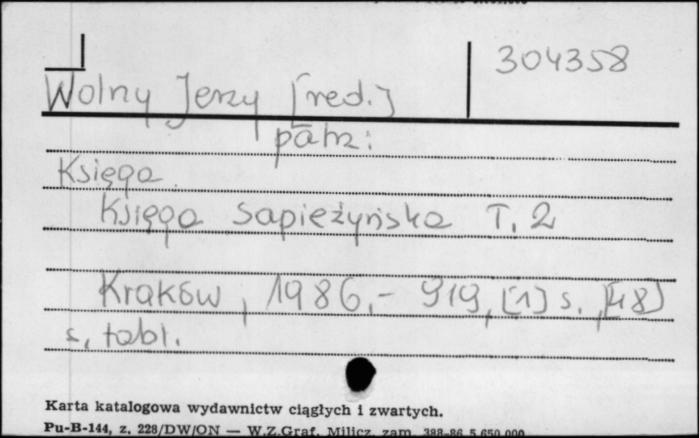 304358
Wolny Jerzy [red.]
patrz:
Księga
Księga Sapieżyńska T. 2
Kraków, 1986.- 919, [1] s., [48]
s. tabl.
Karta katalogowa wydawnictw ciągłych i zwartych.
Pu-B-144, z. 228/DW/ON — W.Z.Graf. Milicz, zam. 388-86 5.650.000